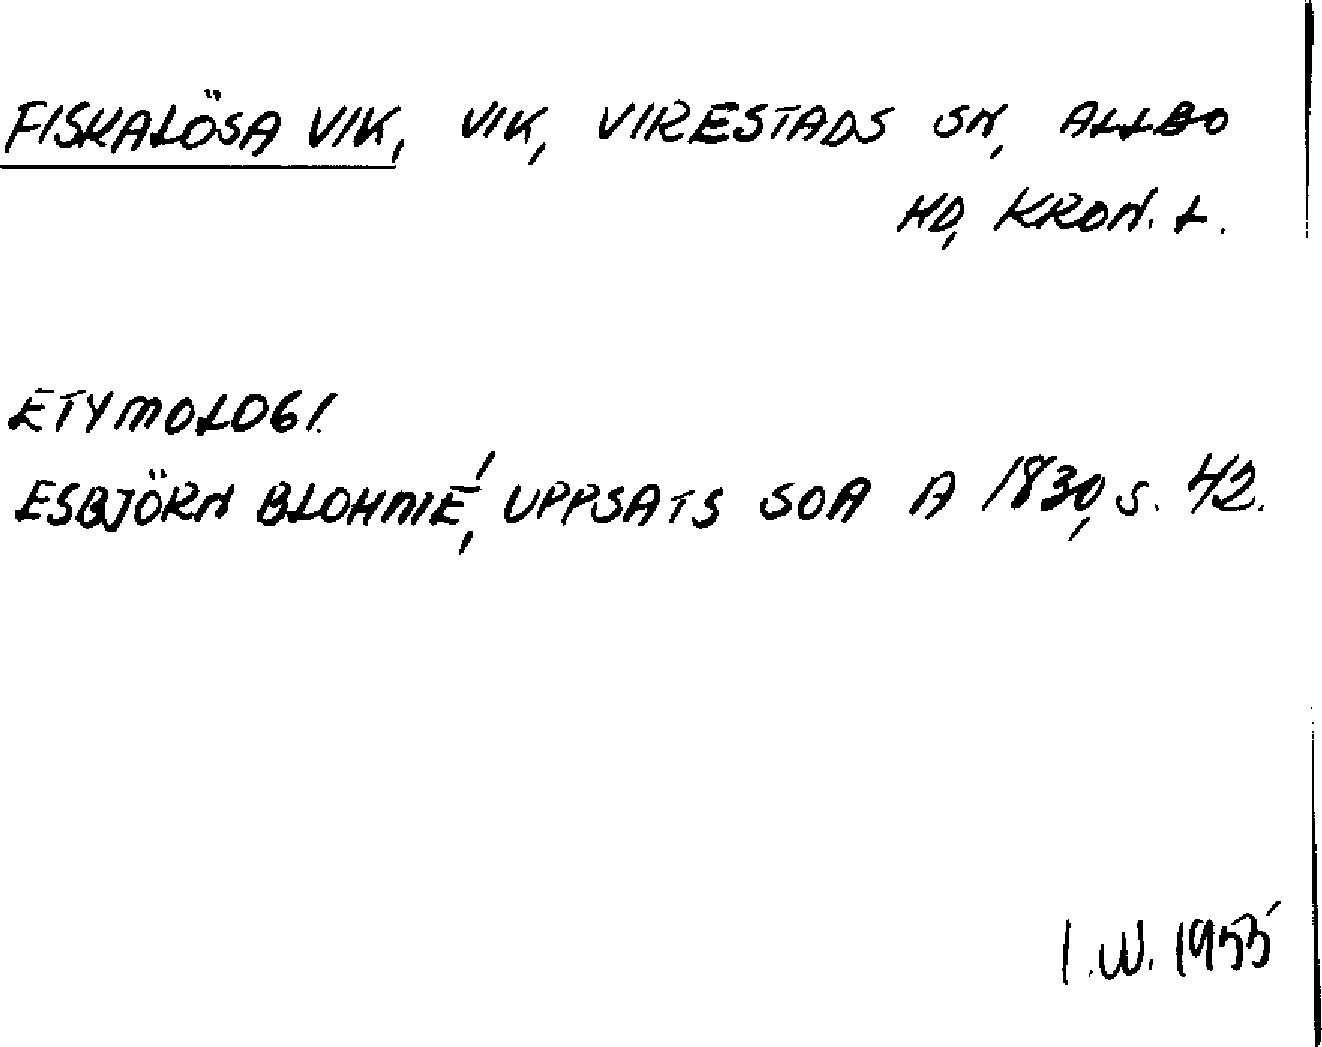 FISKALÖSA VIK, VIK, VIRESTADS SN, ALLBO
HD, KRON. L.
ETYMOLOGI.
ESBJÖRN BLOHMÉ, UPPSATS SOA A 1830, S. 42.
I.W. 1955